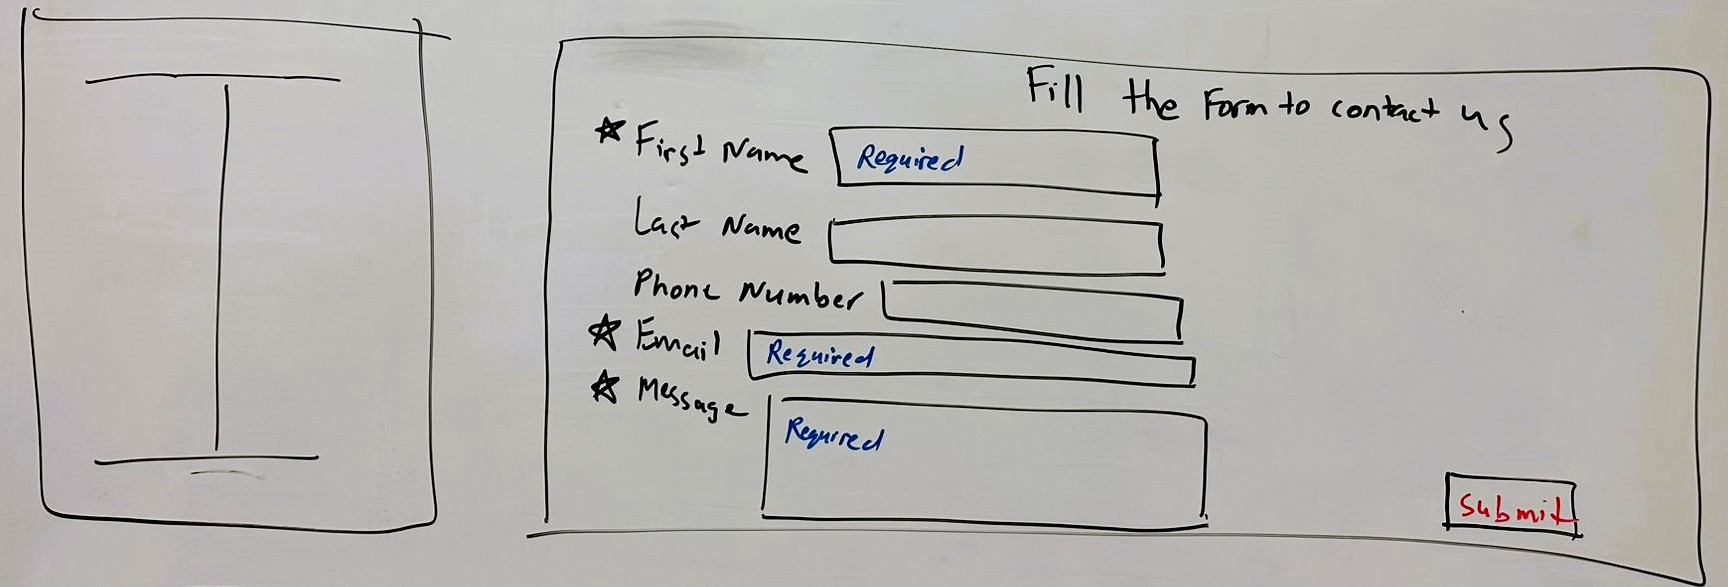 Fill the Form to contact us
☆ First Name Required
Last Name
Phone Number
☆ Email Required
☆ Message Required
Submit